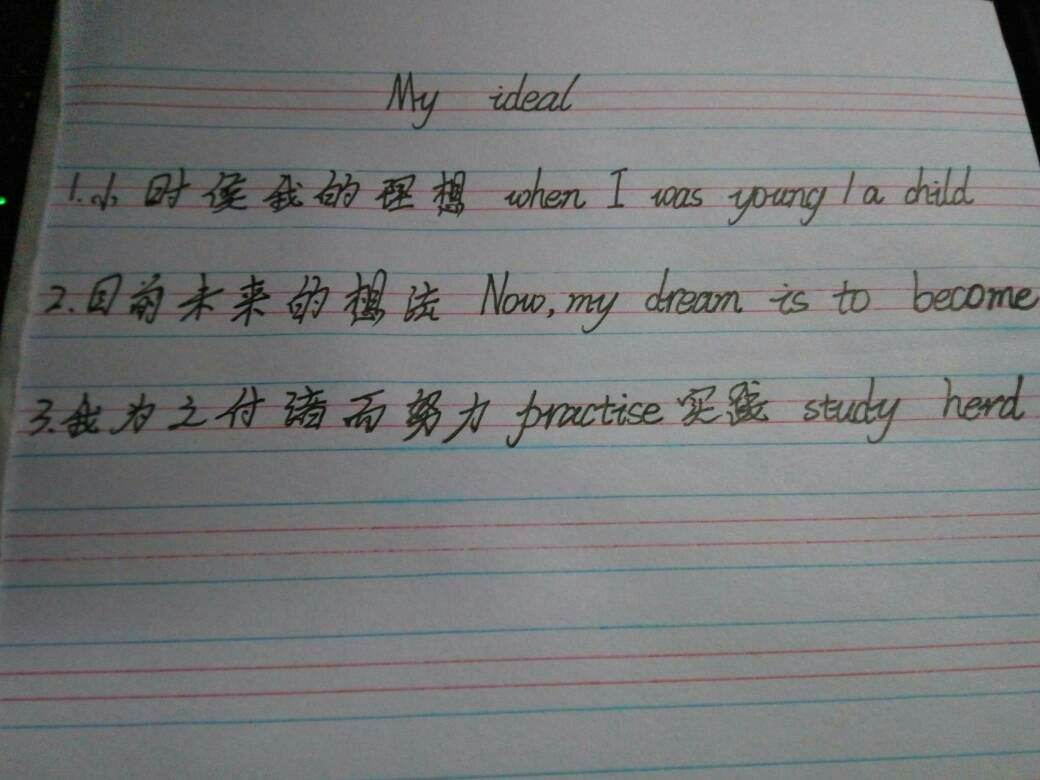 My ideal
1.小时候我的理想 when I was young / a child
2.目前未来的想法 Now, my dream is to become
3.我为之付诸而努力 practise 实践 study herd